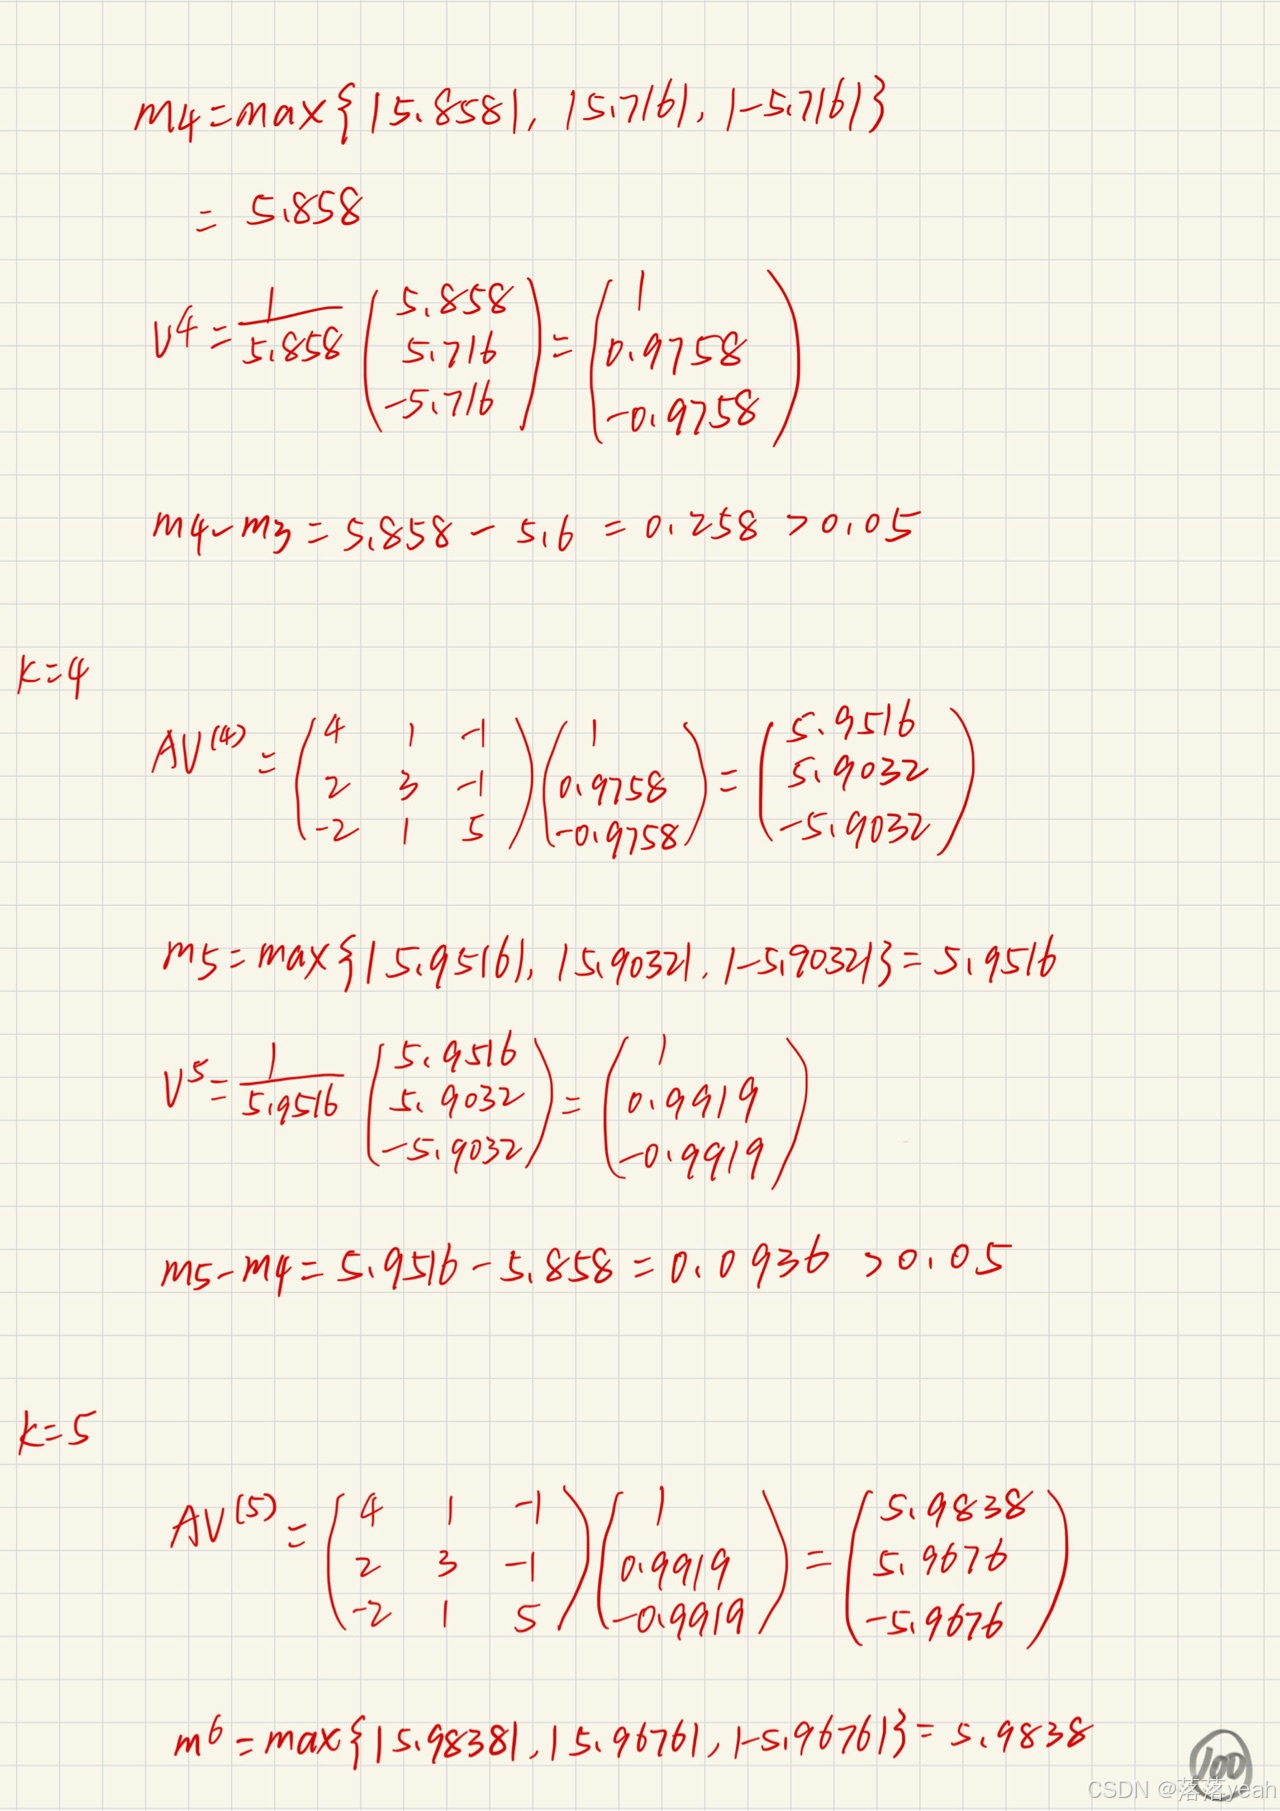 m4=max{|5.858|, |5.716|, |-5.716|}
= 5.858
V^4 = \frac{1}{5.858} \begin{pmatrix} 5.858 \\ 5.716 \\ -5.716 \end{pmatrix} = \begin{pmatrix} 1 \\ 0.9758 \\ -0.9758 \end{pmatrix}
m4-m3 = 5.858 - 5.6 = 0.258 > 0.05
k=4
AV^{(4)} = \begin{pmatrix} 4 & 1 & -1 \\ 2 & 3 & -1 \\ -2 & 1 & 5 \end{pmatrix} \begin{pmatrix} 1 \\ 0.9758 \\ -0.9758 \end{pmatrix} = \begin{pmatrix} 5.9516 \\ 5.9032 \\ -5.9032 \end{pmatrix}
m5=max{|5.9516|, |5.9032|, |-5.9032|} = 5.9516
V^5 = \frac{1}{5.9516} \begin{pmatrix} 5.9516 \\ 5.9032 \\ -5.9032 \end{pmatrix} = \begin{pmatrix} 1 \\ 0.9919 \\ -0.9919 \end{pmatrix}
m5-m4 = 5.9516 - 5.858 = 0.0936 > 0.05
k=5
AV^{(5)} = \begin{pmatrix} 4 & 1 & -1 \\ 2 & 3 & -1 \\ -2 & 1 & 5 \end{pmatrix} \begin{pmatrix} 1 \\ 0.9919 \\ -0.9919 \end{pmatrix} = \begin{pmatrix} 5.9838 \\ 5.9676 \\ -5.9676 \end{pmatrix}
m^6 = max{|5.9838|, |5.9676|, |-5.9676|} = 5.9838
100
CSDN @落落yeah